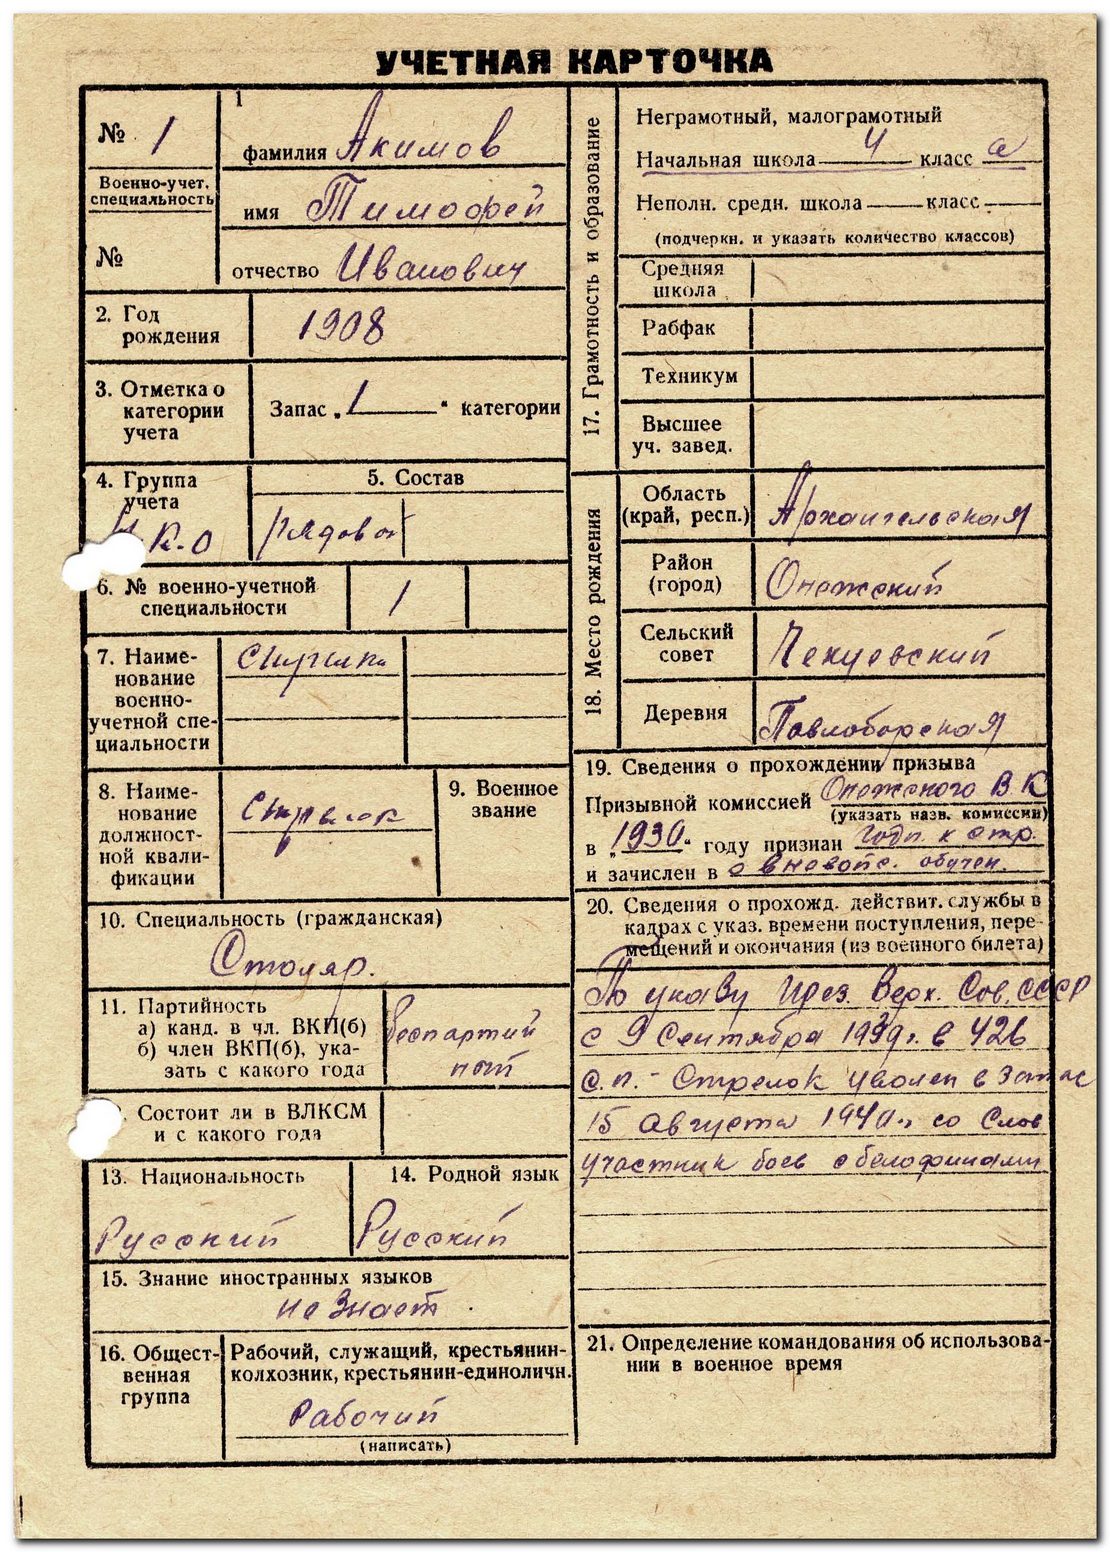 УЧЕТНАЯ КАРТОЧКА
№ 1
Военно-учет. специальность
№
1
фамилия Акимов
имя Тимофей
отчество Иванович
2. Год
рождения
1908
3. Отметка о
категории
учета
Запас „1“ категории
4. Группа
учета
Н.К.О
5. Состав
рядовой
6. № военно-учетной
специальности
1
7. Наиме-
нование
военно-
учетной спе-
циальности
8. Наиме-
нование
должност-
ной квали-
фикации
Стрелок
9. Военное
звание
10. Специальность (гражданская)
Столяр.
11. Партийность
а) канд. в чл. ВКП(б)
б) член ВКП(б), ука-
зать с какого года
Беспартий
ный
. Состоит ли в ВЛКСМ
и с какого года
13. Национальность
Русский
14. Родной язык
Русский
15. Знание иностранных языков
не знает.
16. Общест-
венная
группа
Рабочий, служащий, крестьянин-
колхозник, крестьянин-единоличн.
Рабочий
(написать)
17. Грамотность и образование
Неграмотный, малограмотный
Начальная школа 4 класс а
Неполн. средн. школа класс
(подчеркн. и указать количество классов)
Средняя
школа
Рабфак
Техникум
Высшее
уч. завед.
18. Место рождения
Область
(край, респ.)
Архангельская
Район
(город)
Онежский
Сельский
совет
Чекуевский
Деревня
Павлоборская
19. Сведения о прохождении призыва
Призывной комиссией Онежского В К
(указать назв. комиссии)
в „1930“ году признан годн. к стр.
и зачислен в вневойс. обучен.
20. Сведения о прохожд. действит. службы в
кадрах с указ. времени поступления, пере-
мещений и окончания (из военного билета)
По указу През. Верх. Сов. СССР
с 9 Сентября 1939г. в 426
с.п. - Стрелок уволен в запас
15 Августа 1940г. со слов
участник боев с белофинами
21. Определение командования об использова-
нии в военное время